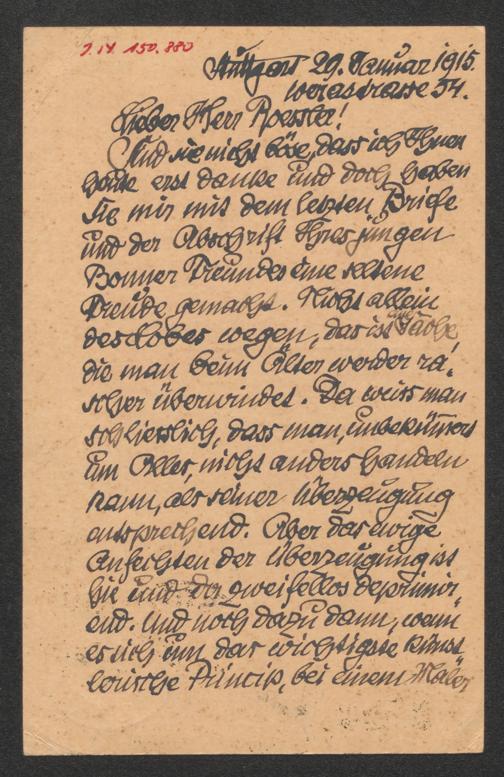 I.N. 150.880
Stuttgart 29. Januar 1915.
Werastrasse 54.
Lieber Herr Roessler!
Sind sie nicht böse, dass ich Ihnen
heute erst danke und doch haben
Sie mir mit dem letzten Briefe
und der Abschrift Ihres jungen
Bonner Freundes eine seltene
Freude gemacht. Nicht allein
des Lobes wegen, das ist
die man beim Älter werden ra-
scher überwindet. Da weiss man
schliesslich, dass man, unbekümmert
um Alles, nicht anders handeln
kann, als seiner Überzeugung
entsprechend. Aber das ewige
Anfechten der Überzeugung ist
hie und da zweifellos deprimir-
end. Und noch dazu dann, wenn
es sich um das wichtigste künst-
lerische Princip, bei einem Maler